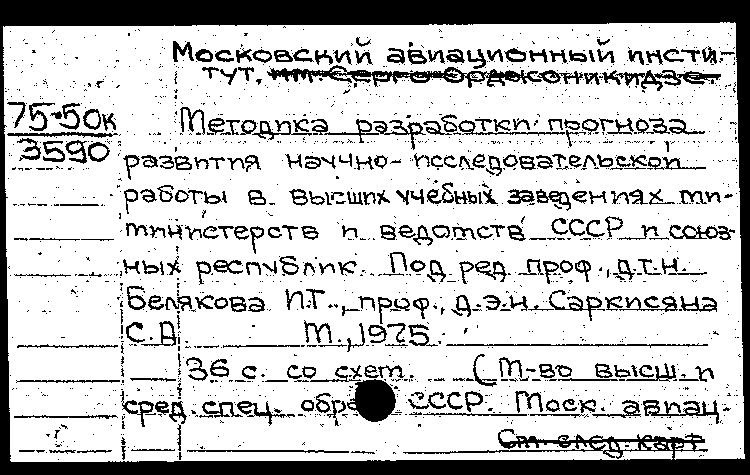 Московский авиационный инсти-
тут. им Серго Орджоникидзе.
75-50к
3590
Методика разработки прогноза
развития научно-исследовательской
работы в высших учебных заведениях ми-
министерств и ведомств СССР и союз-
ных республик. Под ред проф., д.т.н.
Белякова И.Т., проф., д.э.н. Саркисяна
С.А М., 1975.
36 с. со схем. (М-во высш. и
сред. спец. обр СССР. Моск. авиац.
См. след. карт